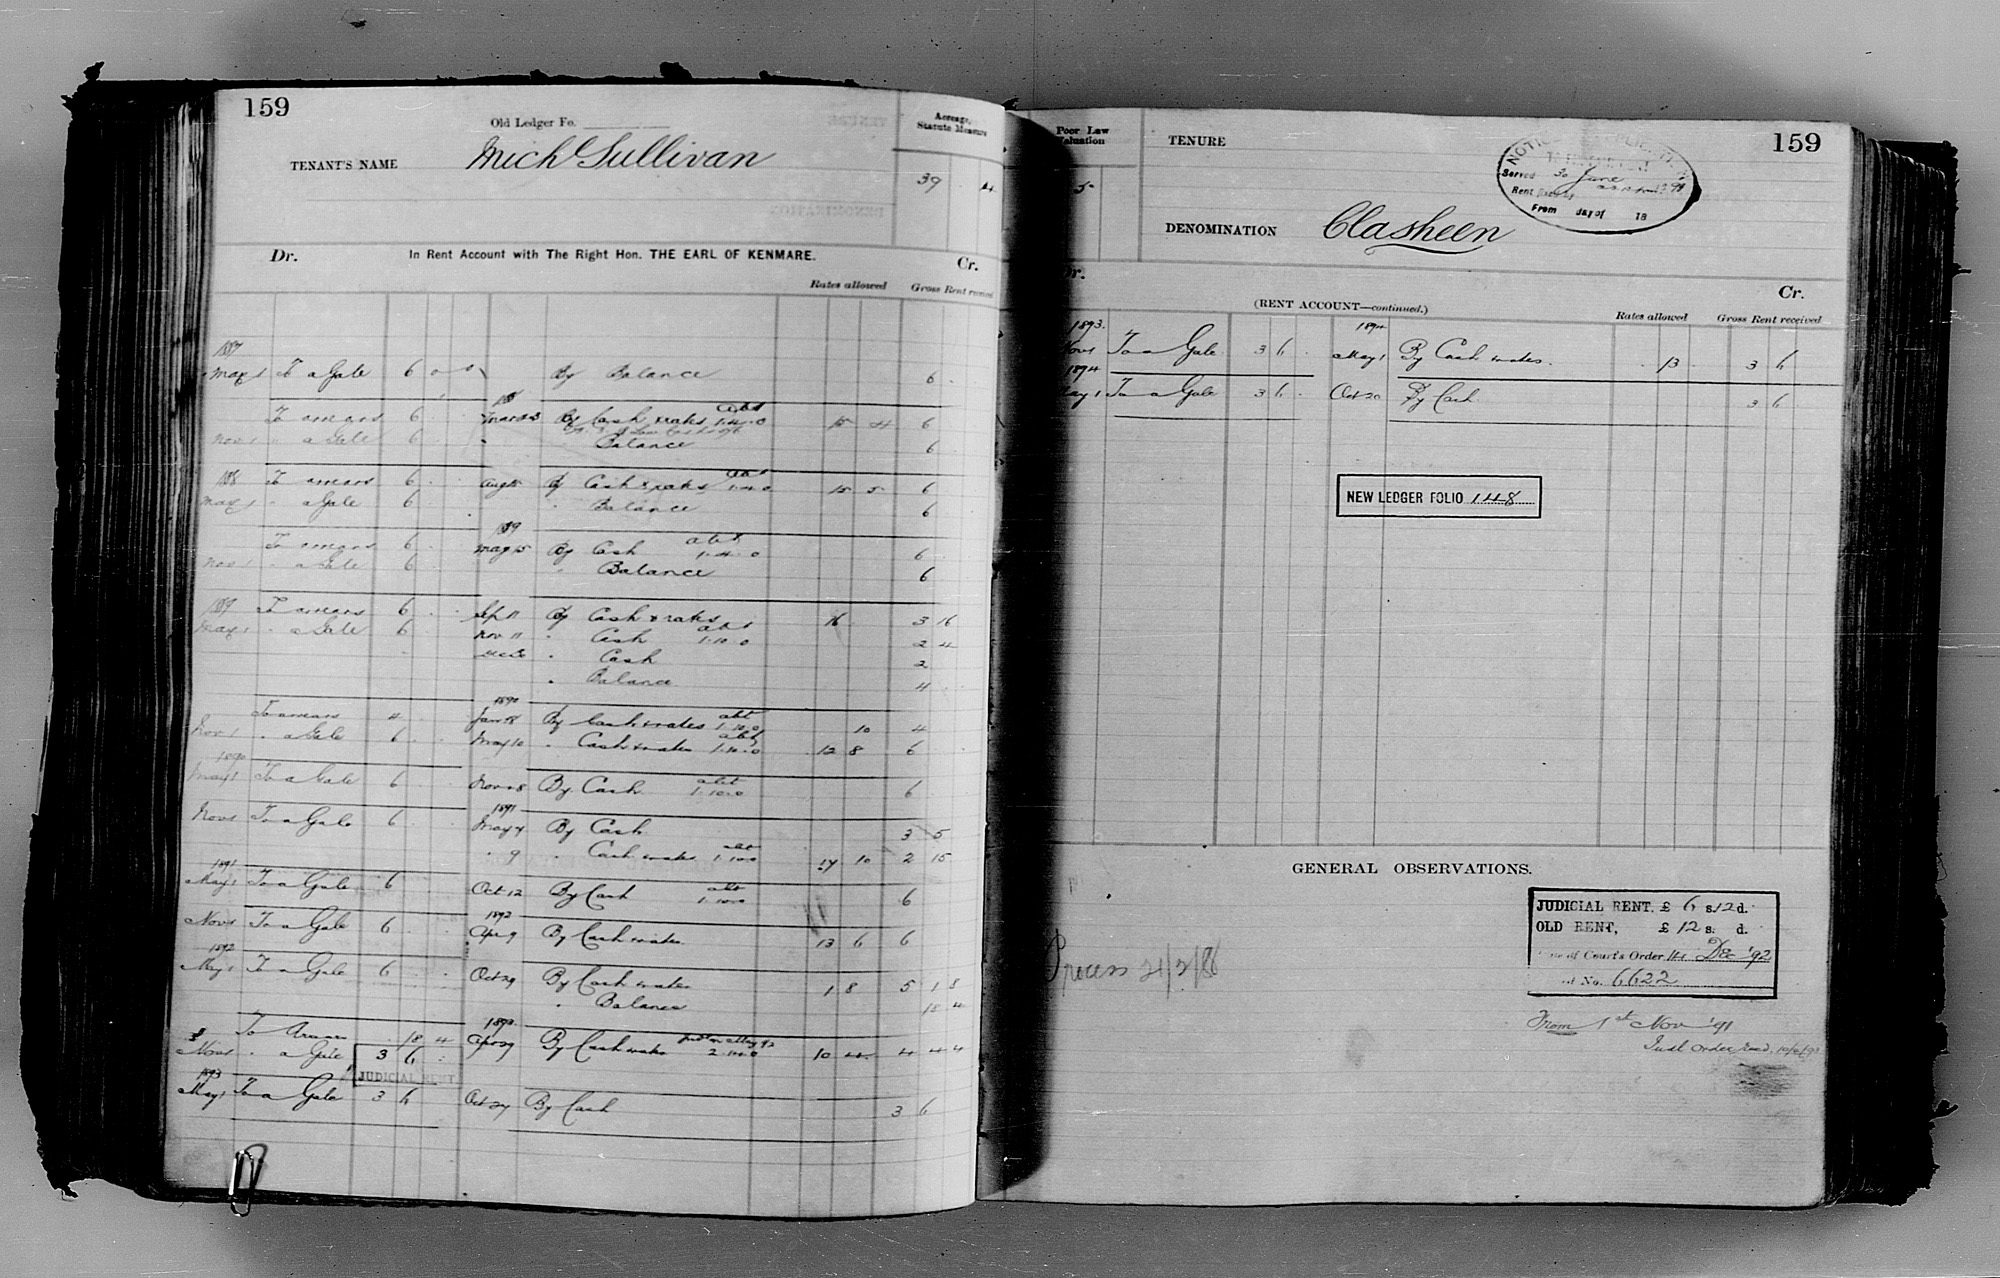 159
Old Ledger Fo.
TENANT'S NAME Mich Sullivan
Acreage, Statute Measure
39 . 4
Dr. In Rent Account with The Right Hon. THE EARL OF KENMARE. Cr.
Rates allowed Gross Rent received
1887
May 1 To a Gale 6 0 0 By Balance 6
To arrears 6 By Cash & rates abt 1.4.0 15 4 6
Nov 1 " a Gale 6 Balance 6
188 To arrears 6 Aug By Cash & rates abt 1.4.0 15 5 6
May 1 " a Gale 6 " Balance 6
1889
To arrears 6 May 15 By Cash abt 1.4.0 6
Nov 1 " a Gale 6 " Balance 6
1889 To arrears 6 Sep 11 By Cash & rates 16 3 16
May 1 " a Gale 6 Nov 11 " Cash abt 1.10.0 2 4
" Cash 2
" Balance 4
1890
To arrears 4 Jan 8 By Cash & rates abt 1.10.0 10 4
Nov 1 " a Gale 6 May 10 " Cash & rates abt 1.10.0 12 8 6
1890
May 1 To a Gale 6 Nov 8 By Cash abt 1.10.0 6
1891
Nov 1 To a Gale 6 May 7 By Cash 3 5
" 9 " Cash & rates abt 1.10.0 17 10 2 15
1891
May 1 To a Gale 6 Oct 12 By Cash abt 1.10.0 6
1892
Nov 1 To a Gale 6 Apr 9 By Cash & rates 13 6 6
1892
May 1 To a Gale 6 Oct 29 By Cash & rates 1 8 5 1 8
" Balance 18 4
1893
To Arrears 18 4 Apr 29 By Cash & rates 2.14.0 10 4 4 4 4
Nov 1 " a Gale 3 6
JUDICIAL RENT
1893
May 1 To a Gale 3 6 Oct 27 By Cash 3 6
Poor Law Valuation
5
TENURE
159
NOTICE
Served 30 June
Rent
From day of 18
DENOMINATION Clasheen
Dr. (RENT ACCOUNT—continued.) Cr.
Rates allowed Gross Rent received
1893. 1894
Nov 1 To a Gale 3 6 May 1 By Cash & rates. 13 3 6
1894
May 1 To a Gale 3 6 Oct 20 By Cash 3 6
NEW LEDGER FOLIO 148
GENERAL OBSERVATIONS.
JUDICIAL RENT, £ 6 s. 12 d.
OLD RENT, £ 12 s. d.
of Court's Order 14 Dec '92
No. 6622
From 1st Nov '91
Judl order recd.
Process 21/2/88